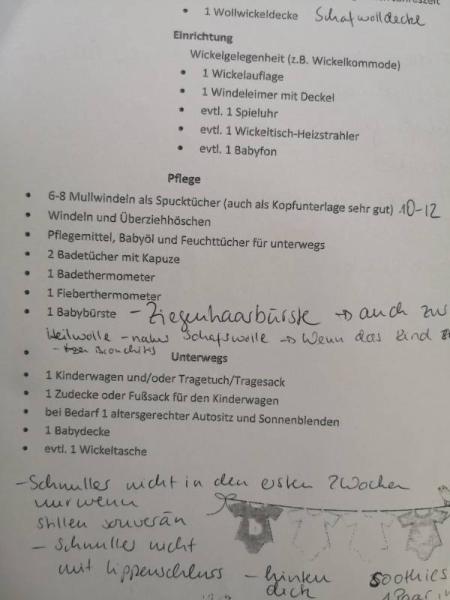 1 Wollwickeldecke Schafwolldecke
Einrichtung
Wickelgelegenheit (z.B. Wickelkommode)
• 1 Wickelauflage
• 1 Windeleimer mit Deckel
• evtl. 1 Spieluhr
• evtl. 1 Wickeltisch-Heizstrahler
• evtl. 1 Babyfon
Pflege
• 6-8 Mullwindeln als Spucktücher (auch als Kopfunterlage sehr gut) 10-12
• Windeln und Überziehhöschen
• Pflegemittel, Babyöl und Feuchttücher für unterwegs
• 2 Badetücher mit Kapuze
• 1 Badethermometer
• 1 Fieberthermometer
• 1 Babybürste - Ziegenhaarbürste → auch zur
Heilwolle - Schafswolle → Wenn das Kind
- Bronchitis
• Unterwegs
• 1 Kinderwagen und/oder Tragetuch/Tragesack
• 1 Zudecke oder Fußsack für den Kinderwagen
• bei Bedarf 1 altersgerechter Autositz und Sonnenblenden
• 1 Babydecke
• evtl. 1 Wickeltasche
- Schnuller nicht in den ersten 2 Wochen
nur wenn
stillen souverän
- Schnuller nicht
mit Lippenschluss - hinten Soothies
dich 1 Paar